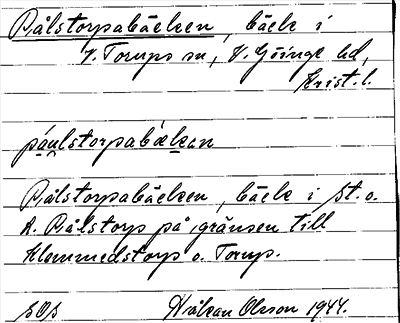 Pålstorpabäcken, bäck i
V. Torups sn, V. Göinge hd,
Krist. l.
påulstorpabäkan
Pålstorpabäcken, bäck i St. o.
A. Pålstorp på gränsen till
Klemmedstorp o. Torup.
Håkan Olsson 1944.